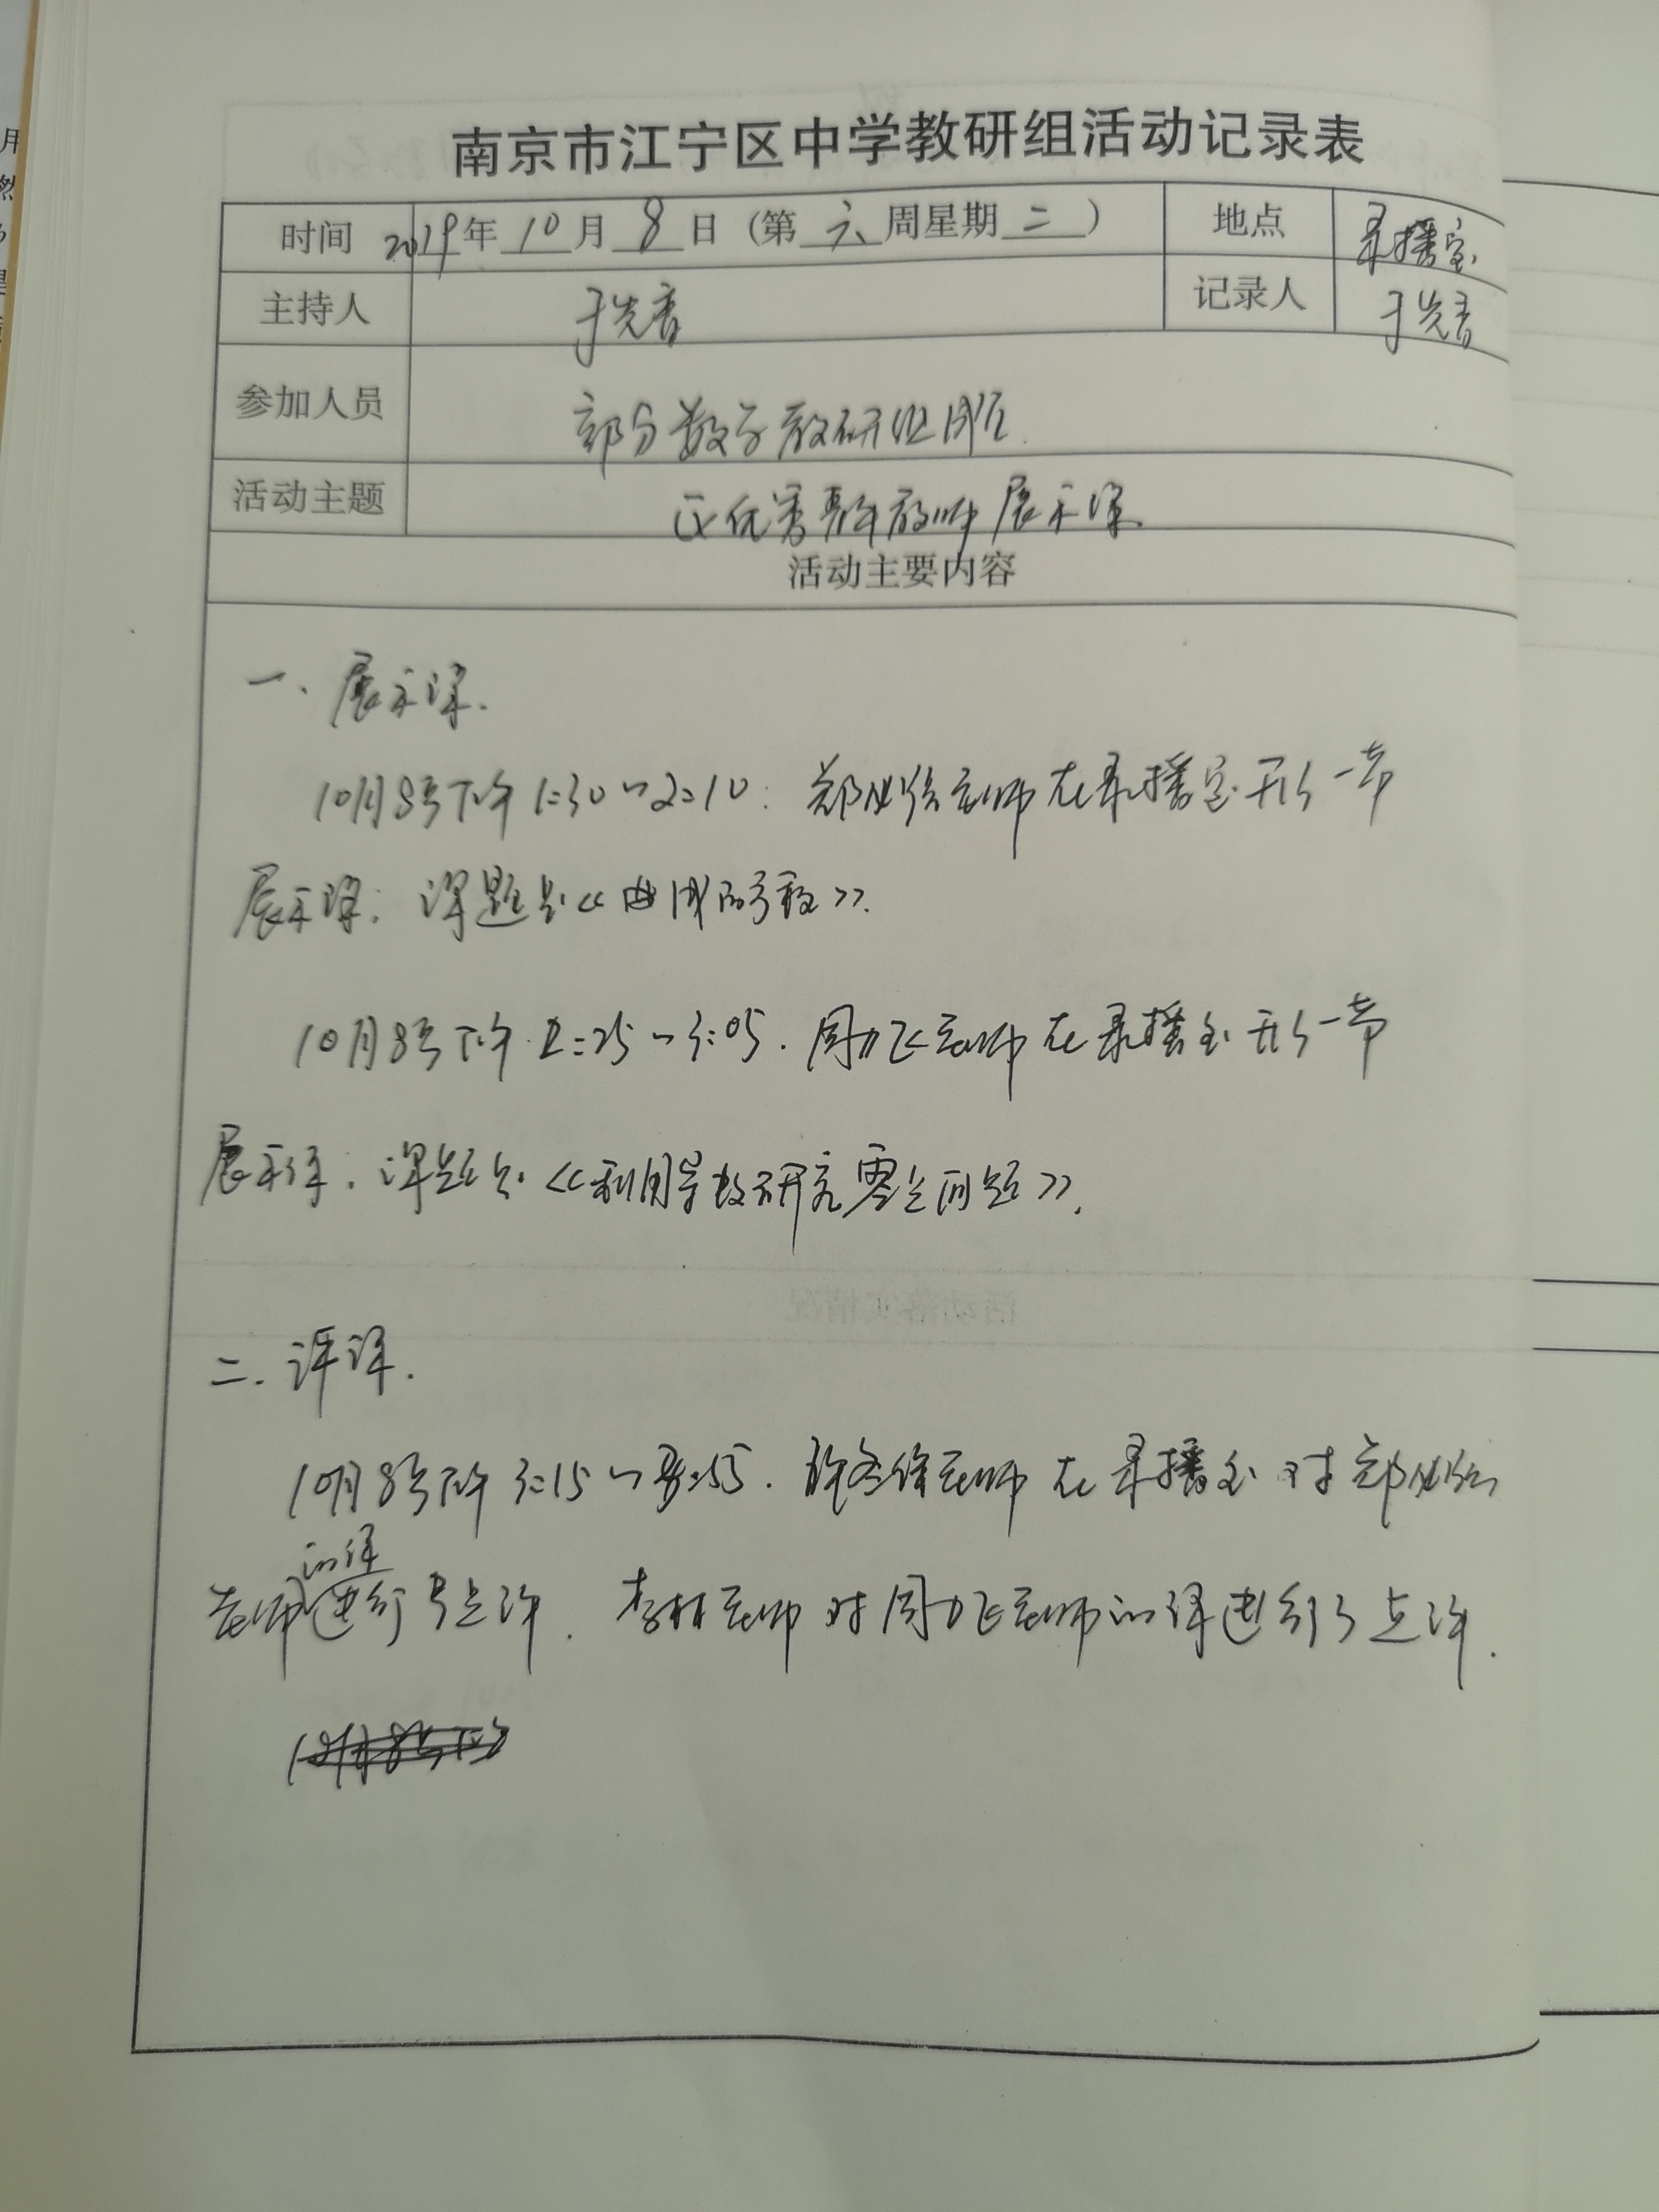 南京市江宁区中学教研组活动记录表
时间 2019年 10 月 8 日 (第 六 周星期 二 ) 地点 录播室
主持人 于先香 记录人 于先香
参加人员 部分数学教研组成员.
活动主题 区优秀青年教师展示课.
活动主要内容
一、展示课.
10月8号下午1:30~2:10: 郑必 老师在录播室开了一节
展示课: 课题是《 的 》.
10月8号下午2:25~3:05. 周飞老师在录播室开了一节
展示课. 课题是《利用导数研究零点问题》.
二. 评课.
10月8号下午3:15~3:55. 老师在录播室对郑必
的课
老师进行了点评. 李林老师对周飞老师的课进行了点评.